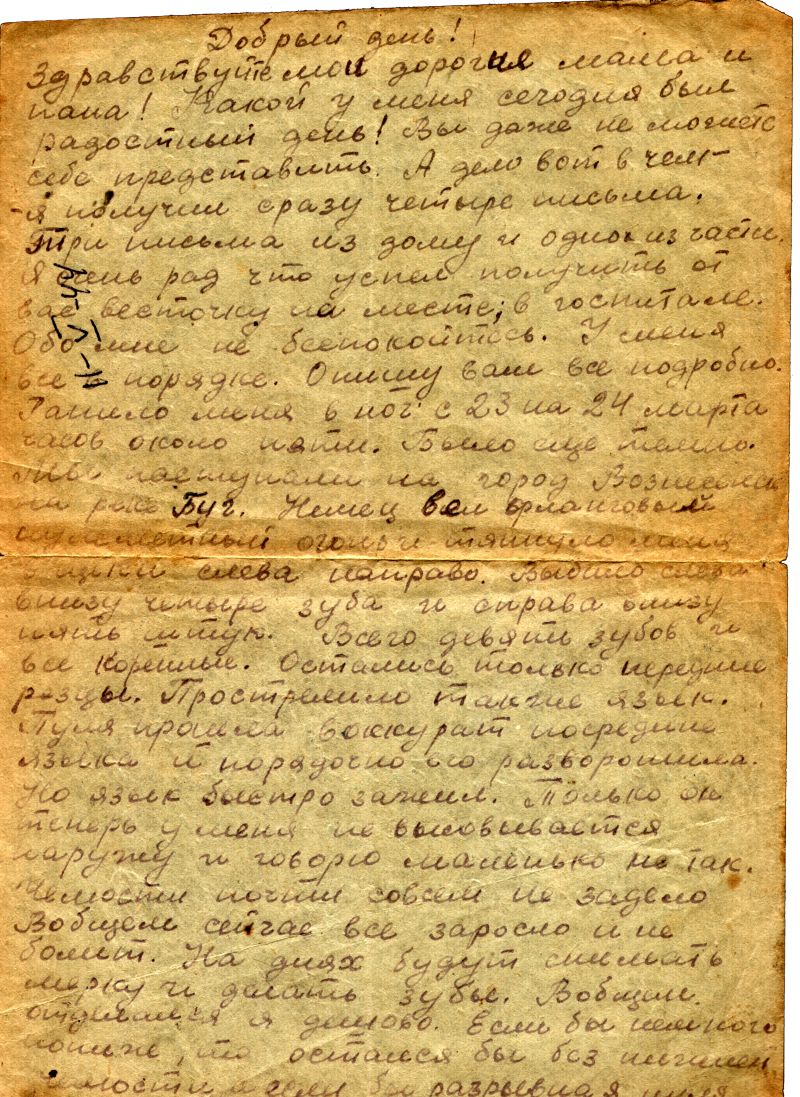 Добрый день!
Здравствуйте мои дорогия мама и
папа! Какой у меня сегодня был
радостный день! Вы даже не можете
себе представить. А дело вот в чем-
-я получил сразу четыре письма.
Три письма из дому и одно из части.
Я очень рад что успел получить от
вас весточку на месте, в госпитале.
Обо мне не беспокойтесь. У меня
все в порядке. Опишу вам все подробно.
Ранило меня в ночь с 23 на 24 марта
часов около пяти. Было еще темно.
Мы наступали на город Вознесенск
на реке Буг. Немец вел фланговый
пулеметный огонь и меня
в щеки слева направо. Выбило слева
внизу четыре зуба и справа внизу
пять штук. Всего девять зубов и
все коренные. Остались только передние
резцы. Прострелило также язык.
Пуля прошлаваккурат посредине
языка и порядочно его разворошила.
Но язык быстро зажил. Только он
теперь у меня не высовывается
наружу и говорю маленько не так.
Челюсти почти совсем не задело
Вобщем сейчас все заросло и не
болит. На днях будут снимать
мерку и делать зубы. Вобщем
отделался я дешево. Если бы немного
пониже, то остался бы без нижней
челюсти а если бы разрывная пуля